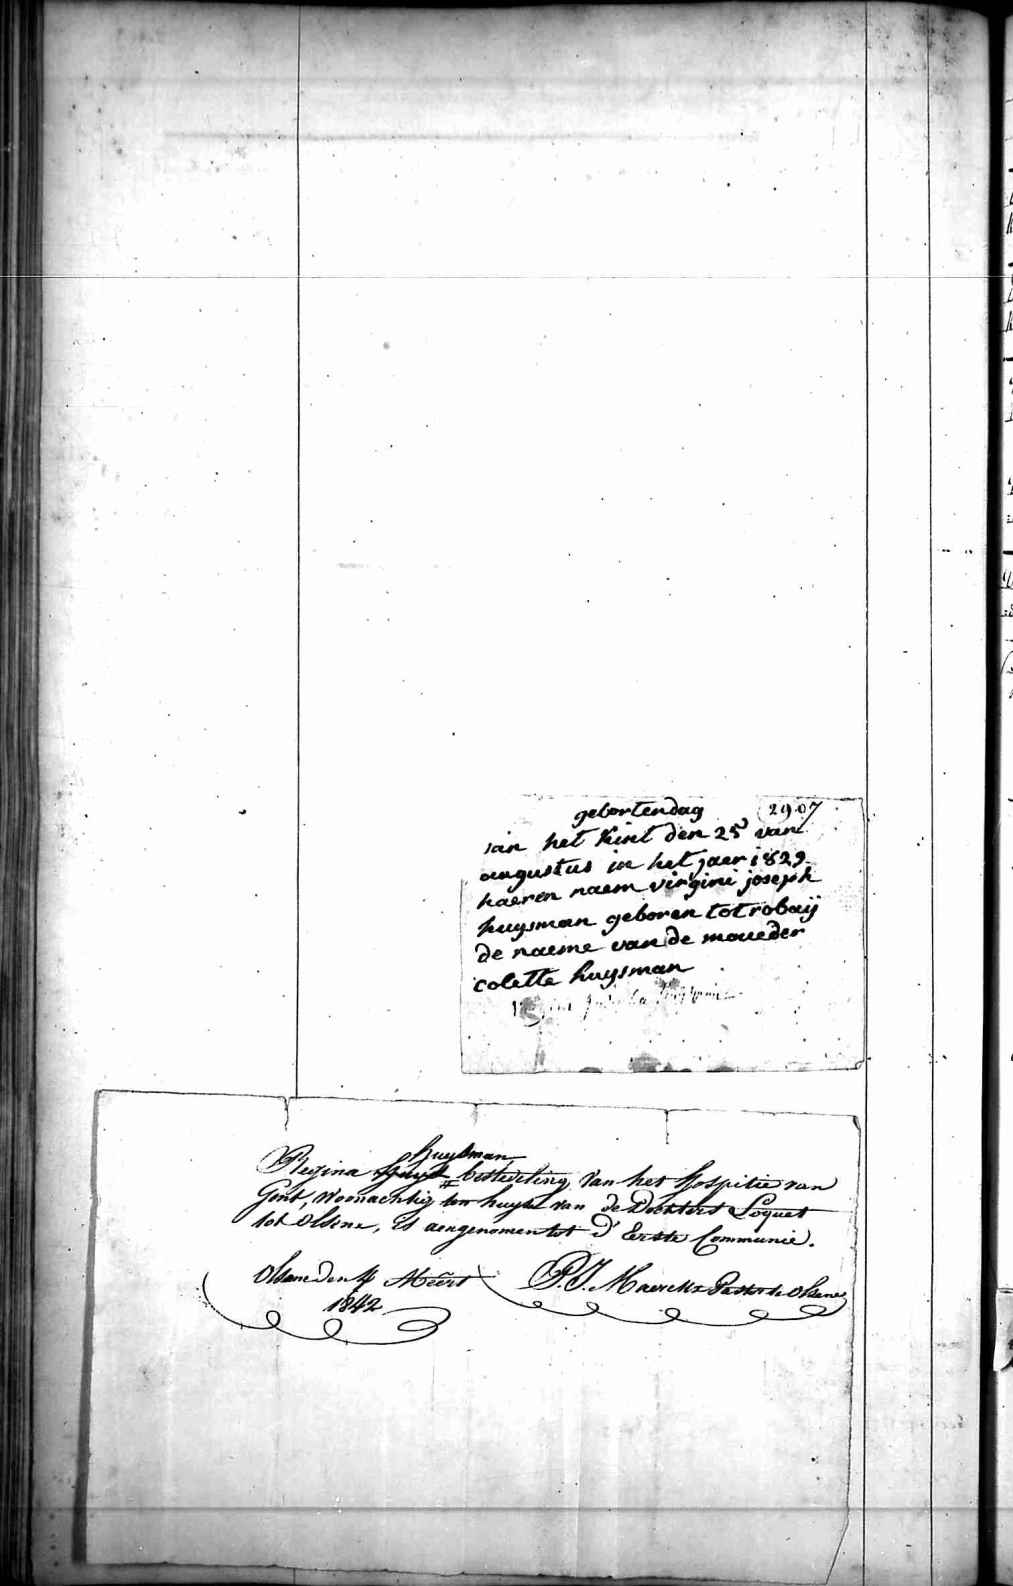 gebortendag 2907
van het kint den 25 van
augustus in het jaer 1829
haeren naem virgini joseph
huysman geboren tot robaij
de naeme van de moueder
colette huysman
Huysman
Regina Huys bestedeling van het hospitie van
Gent, woonachtig ten huyse van de Dochters Loquet
tot Olsene, is aengenomen tot d' Eerste Communie.
Olsene den 4 Meert P. J. Maerckx Pastor te Olsene
1842